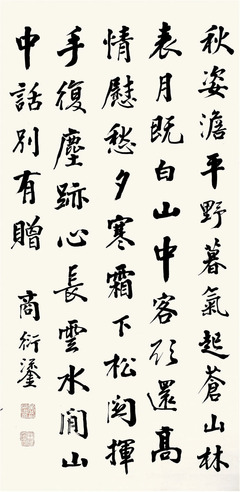 秋姿澹平野暮氣起蒼山林
表月既白山中客還高
情慰愁夕寒霜下松関揮
手復塵跡心長雲水間山
中話別有贈
商衍鎏